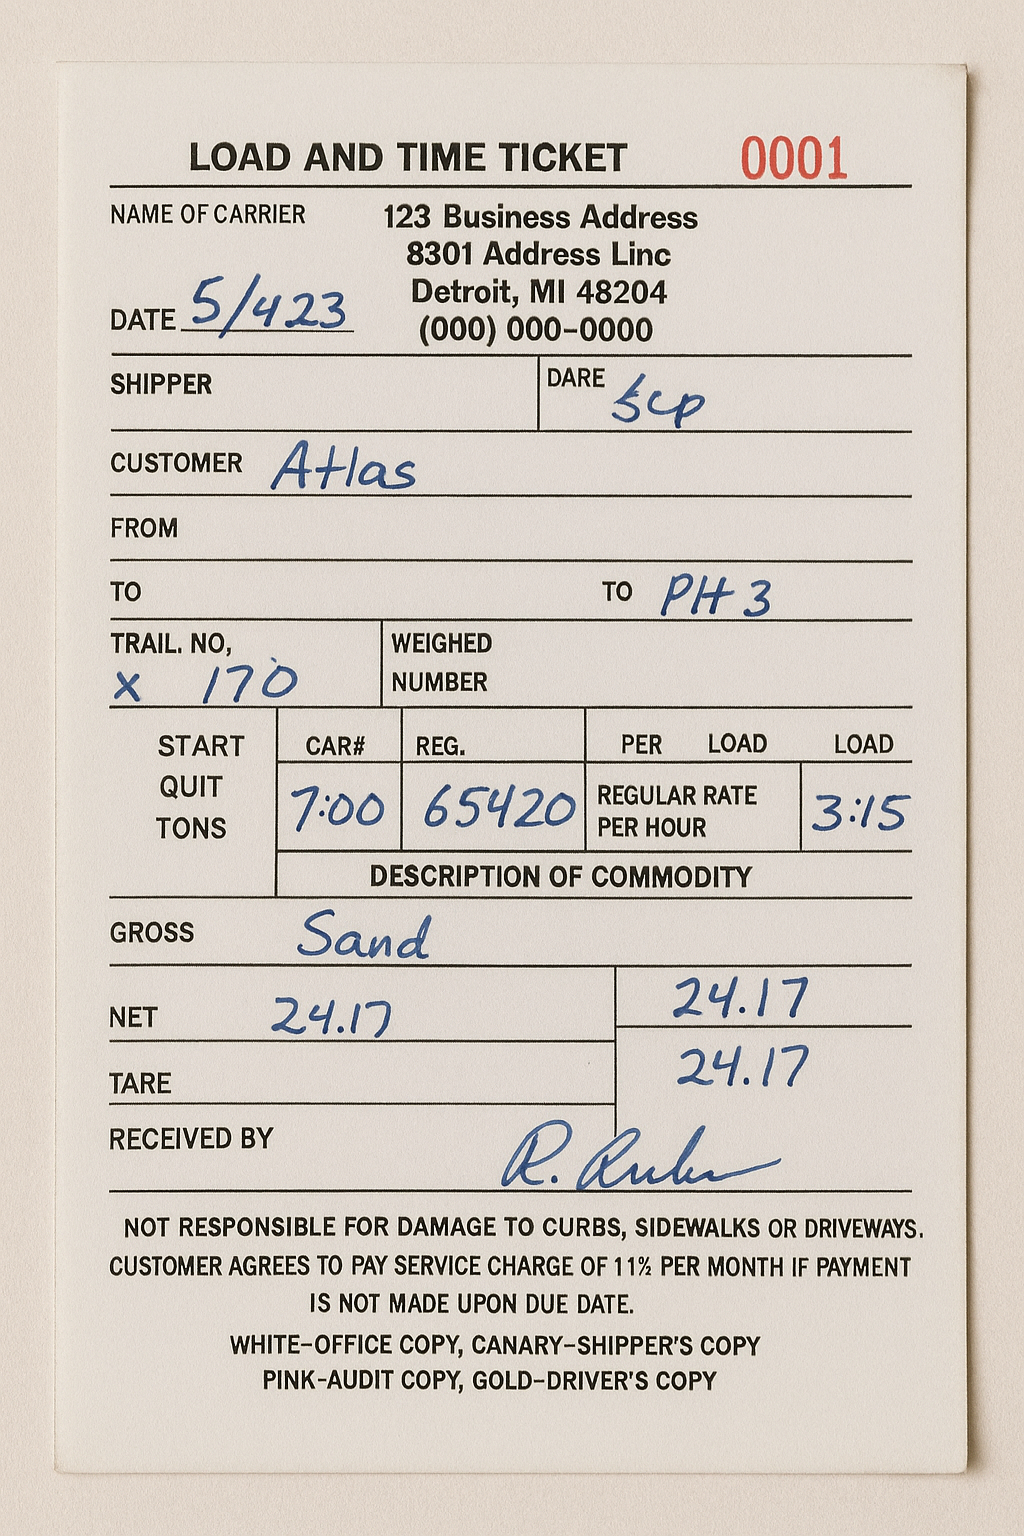 LOAD AND TIME TICKET 0001
NAME OF CARRIER 123 Business Address
8301 Address Linc
Detroit, MI 48204
DATE 5/423 (000) 000-0000
SHIPPER DARE
CUSTOMER Atlas
FROM
TO TO PH 3
TRAIL. NO, WEIGHED
x 170 NUMBER
START CAR# REG. PER LOAD LOAD
QUIT 7:00 65420 REGULAR RATE 3:15
TONS PER HOUR
DESCRIPTION OF COMMODITY
GROSS Sand
NET 24.17 24.17
TARE 24.17
RECEIVED BY R.
NOT RESPONSIBLE FOR DAMAGE TO CURBS, SIDEWALKS OR DRIVEWAYS.
CUSTOMER AGREES TO PAY SERVICE CHARGE OF 11% PER MONTH IF PAYMENT
IS NOT MADE UPON DUE DATE.
WHITE-OFFICE COPY, CANARY-SHIPPER'S COPY
PINK-AUDIT COPY, GOLD-DRIVER'S COPY